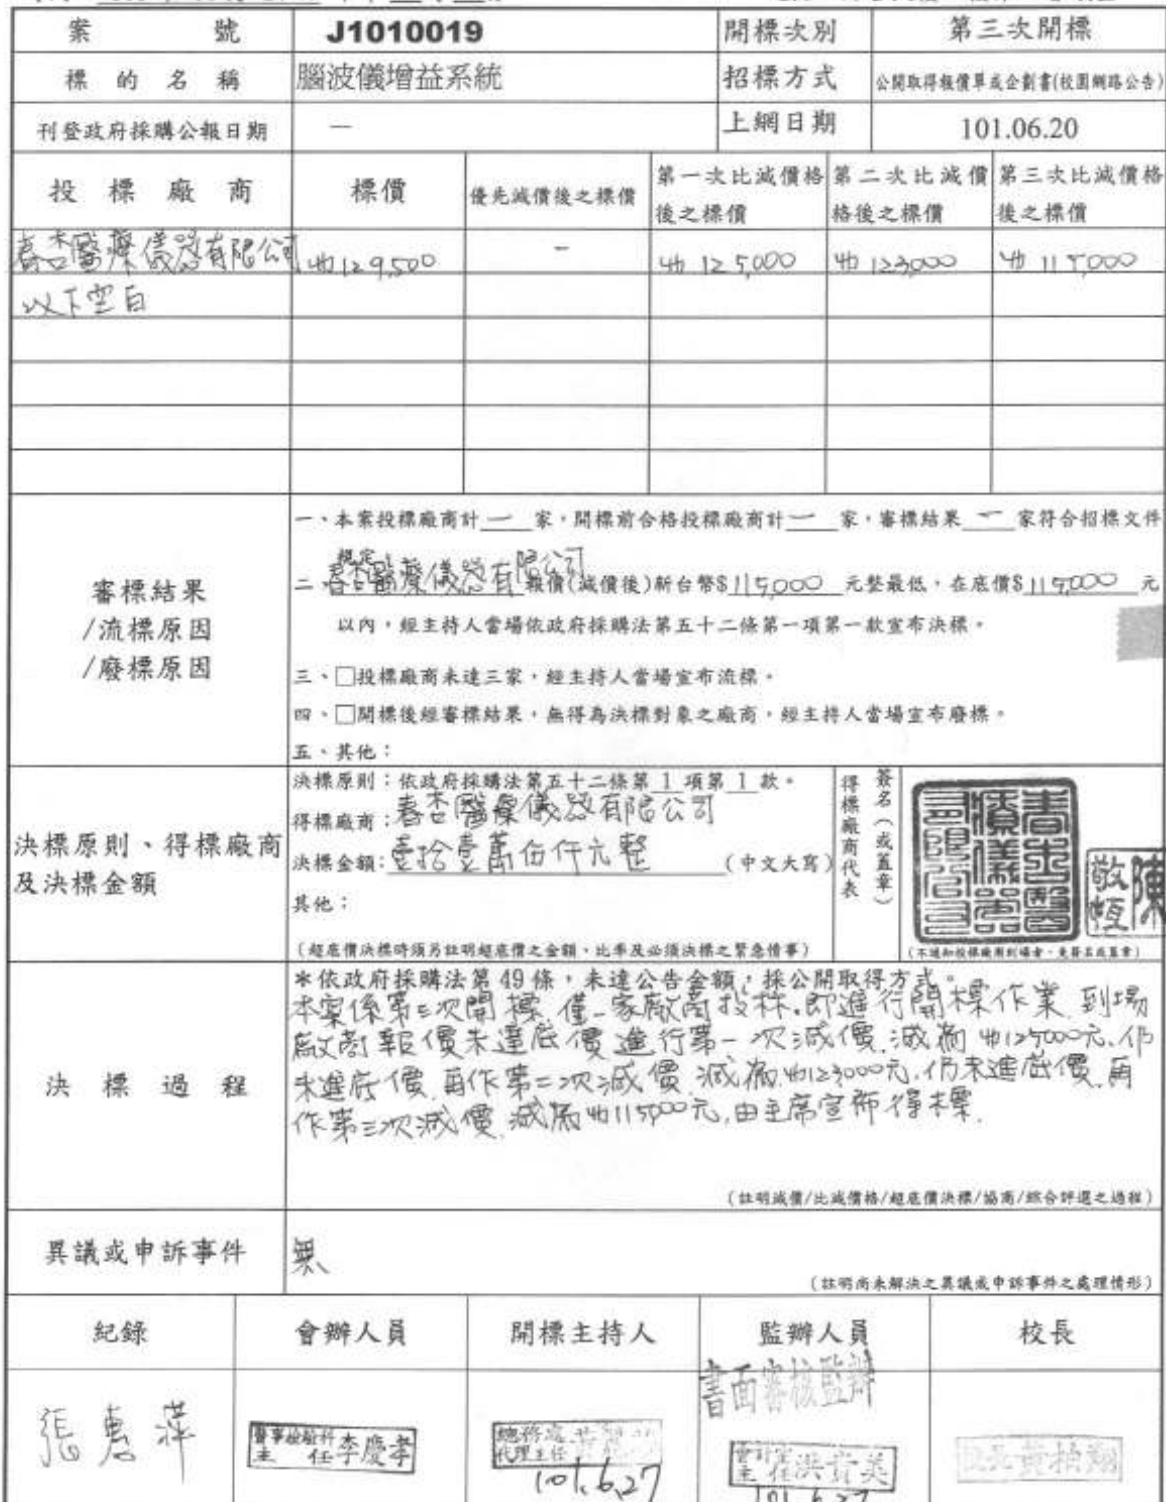 案 號 J1010019 開標次別 第三次開標
標 的 名 稱 腦波儀增益系統 招標方式 公開取得報價單或企劃書(校園網路公告)
刊登政府採購公報日期 — 上網日期 101.06.20
投 標 廠 商 標價 優先減價後之標價 第一次比減價格後之標價 第二次比減價格後之標價 第三次比減價格後之標價
春杏醫療儀器有限公司 129,500 — 125,000 123,000 115,000
以下空白
審標結果
/流標原因
/廢標原因
一、本案投標廠商計 一 家,開標前合格投標廠商計 一 家,審標結果 一 家符合招標文件
規定。
二 春杏醫療儀器有限公司 報價(減價後)新台幣$115,000 元整最低,在底價$115,000 元
以內,經主持人當場依政府採購法第五十二條第一項第一款宣布決標。
三、□投標廠商未達三家,經主持人當場宣布流標。
四、□開標後經審標結果,無得為決標對象之廠商,經主持人當場宣布廢標。
五、其他:
決標原則、得標廠商
及決標金額
決標原則:依政府採購法第五十二條第 1 項第 1 款。
得標廠商:春杏醫療儀器有限公司
決標金額:壹拾壹萬伍仟元整 (中文大寫)
其他:
(超底價決標時須另註明超底價之金額、比率及必須決標之緊急情事)
得標廠商代表
簽名(或蓋章)
春杏醫療儀器有限公司
陳敬恆
(不通知投標廠商到場者,免簽名或蓋章)
決 標 過 程
*依政府採購法第 49 條,未達公告金額,採公開取得方式。
本案係第三次開標,僅一家廠商投标,即進行開標作業,到場
廠商報價未達底價,進行第一次減價,減為125000元,仍
未進底價,再作第二次減價,減為123000元,仍未進底價,再
作第三次減價,減為115000元,由主席宣佈得標.
(註明減價/比減價格/超底價決標/協商/綜合評選之過程)
異議或申訴事件 無
(註明尚未解決之異議或申訴事件之處理情形)
紀錄 會辦人員 開標主持人 監辦人員 校長
書面審核監辦
張惠萍
醫事檢驗科主任李慶孝
總務處 代理主任
101.6.27
會計室主任洪貴美
101.6.27
校長黃柏翔